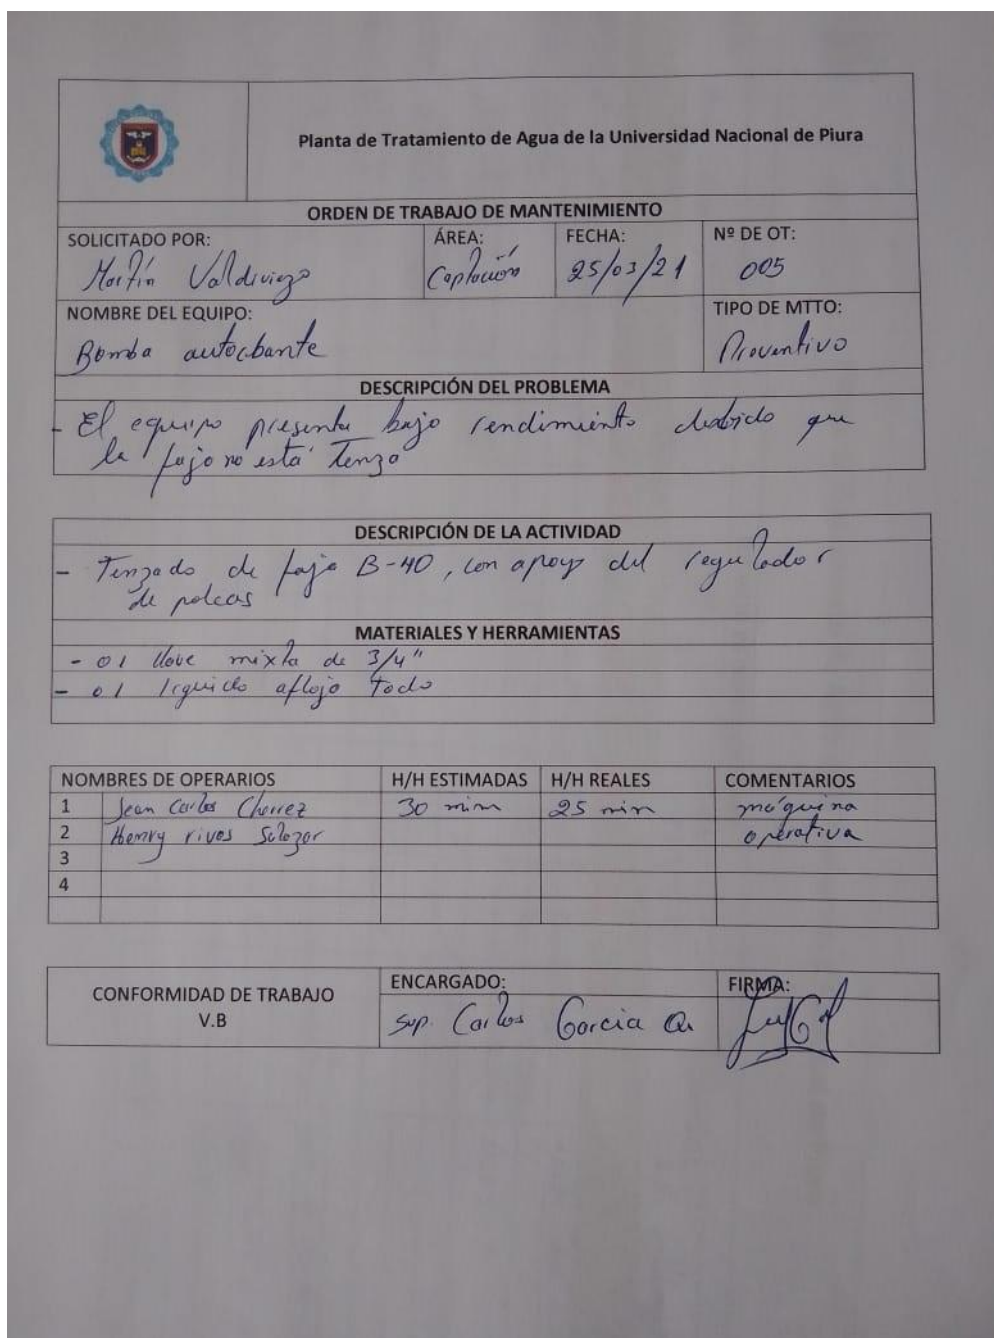 Planta de Tratamiento de Agua de la Universidad Nacional de Piura
ORDEN DE TRABAJO DE MANTENIMIENTO
SOLICITADO POR:
Martín Valdiviezo
ÁREA:
Captación
FECHA:
25/03/21
Nº DE OT:
005
NOMBRE DEL EQUIPO:
Bomba autocbante
TIPO DE MTTO:
Preventivo
DESCRIPCIÓN DEL PROBLEMA
- El equipo presenta bajo rendimiento debido que
la faja no está Tenza
DESCRIPCIÓN DE LA ACTIVIDAD
- Tenzado de faja B-40, con apoyo del regulador
de poleas
MATERIALES Y HERRAMIENTAS
- 01 llave mixta de 3/4"
- 01 liquido aflojo todo
NOMBRES DE OPERARIOS H/H ESTIMADAS H/H REALES COMENTARIOS
1 Jean Carlos 30 min 25 min máquina
2 Henry rivas Salazar operativa
3
4
CONFORMIDAD DE TRABAJO
V.B
ENCARGADO:
Sup. Carlos Garcia
FIRMA: